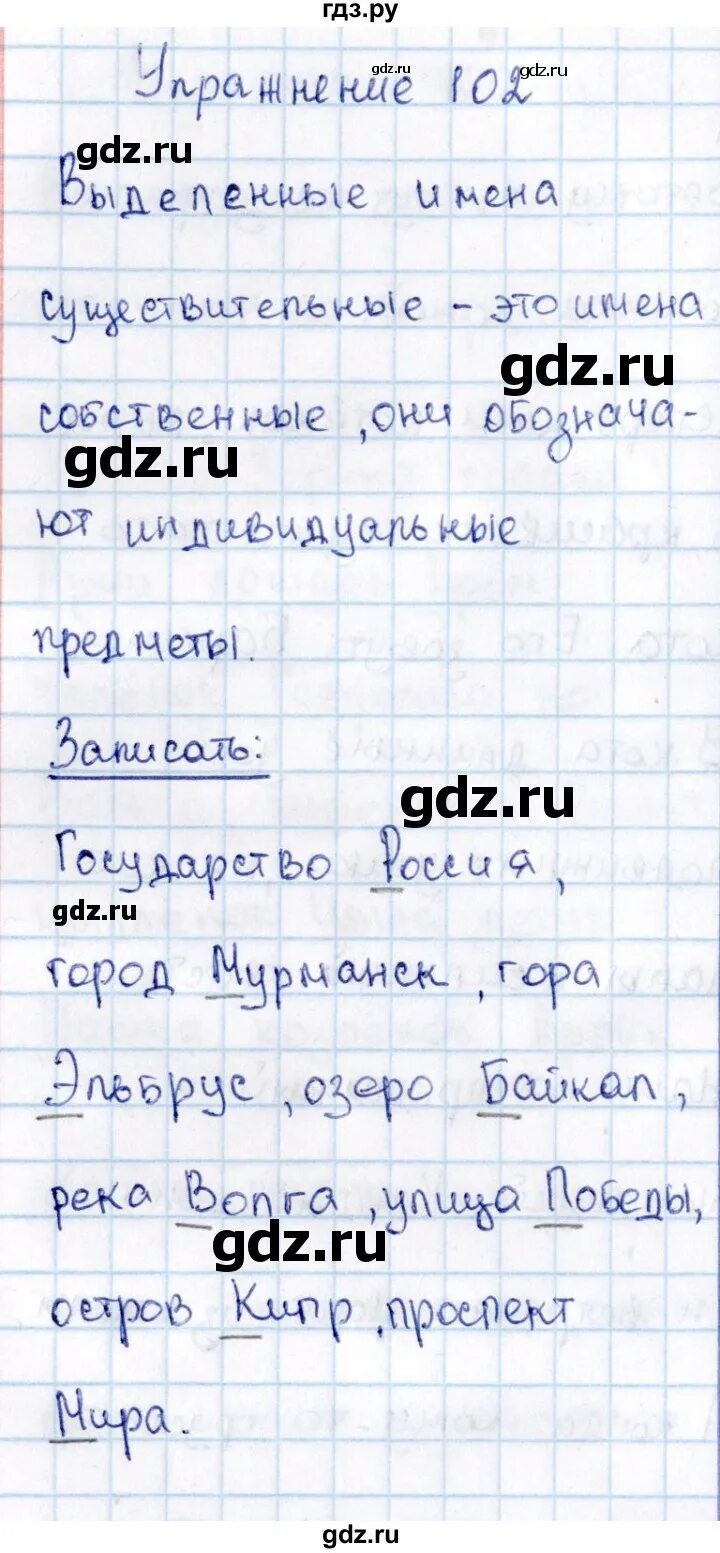 гдз.ру
Упражнение 102
gdz.ru
gdz.ru
gdz.ru
Выделенные имена
существительные – это имена
gdz.ru
собственные, они обознача-
gdz.ru
ют индивидуальные
предметы.
Записать:
gdz.ru
Государство Россия,
gdz.ru
город Мурманск, гора
Эльбрус, озеро Байкал,
река Волга, улица Победы,
gdz.ru
остров Кипр, проспект
Мира.
gdz.ru